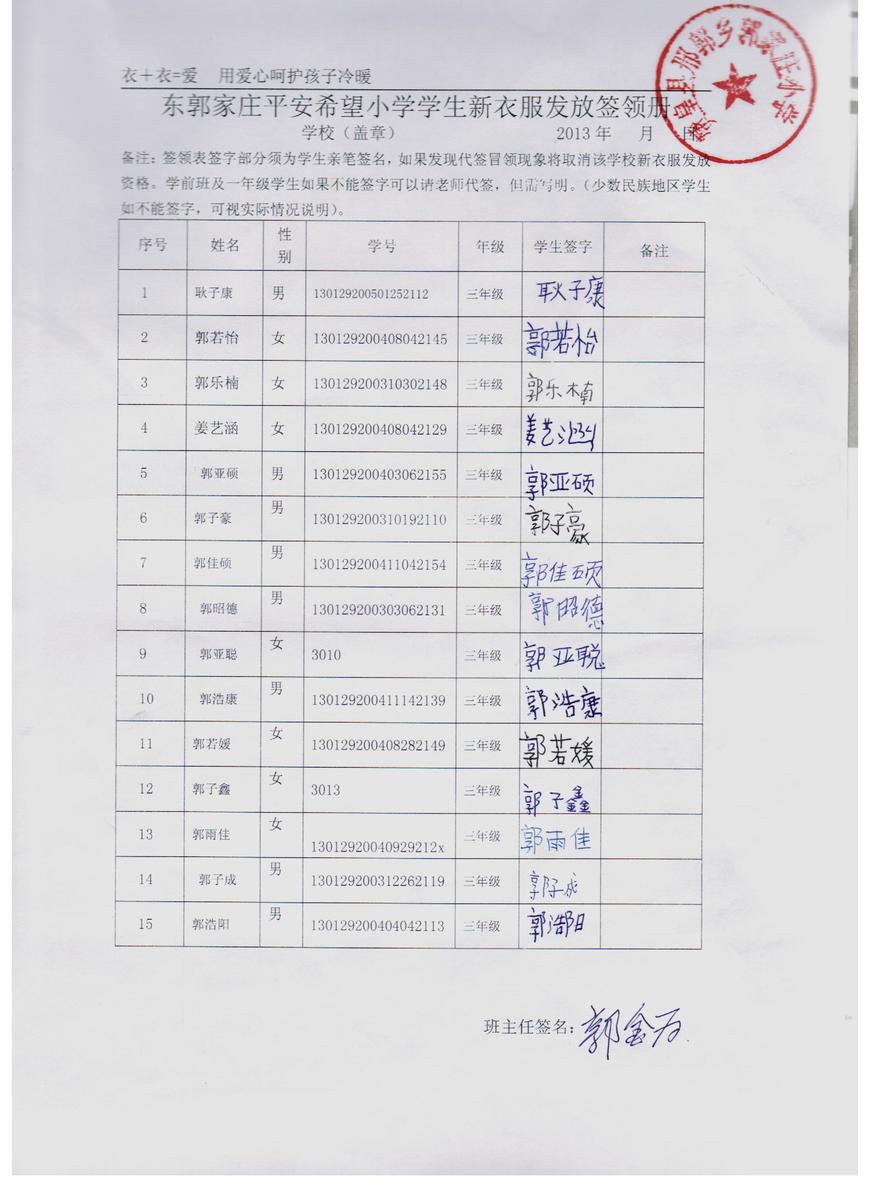 衣+衣=爱 用爱心呵护孩子冷暖
东郭家庄平安希望小学学生新衣服发放签领册
学校（盖章） 2013年 月 日
备注：签领表签字部分须为学生亲笔签名，如果发现代签冒领现象将取消该学校新衣服发放
资格。学前班及一年级学生如果不能签字可以请老师代签，但需写明。（少数民族地区学生
如不能签字，可视实际情况说明）。
序号 姓名 性别 学号 年级 学生签字 备注
1 耿子康 男 130129200501252112 三年级 耿子康
2 郭若怡 女 130129200408042145 三年级 郭若怡
3 郭乐楠 女 130129200310302148 三年级 郭乐楠
4 姜艺涵 女 130129200408042129 三年级 姜艺涵
5 郭亚硕 男 130129200403062155 三年级 郭亚硕
6 郭子豪 男 130129200310192110 三年级 郭子豪
7 郭佳硕 男 130129200411042154 三年级 郭佳硕
8 郭昭德 男 130129200303062131 三年级 郭昭德
9 郭亚聪 女 3010 三年级 郭亚聪
10 郭浩康 男 130129200411142139 三年级 郭浩康
11 郭若媛 女 130129200408282149 三年级 郭若媛
12 郭子鑫 女 3013 三年级 郭子鑫
13 郭雨佳 女 13012920040929212x 三年级 郭雨佳
14 郭子成 男 130129200312262119 三年级 郭子成
15 郭浩阳 男 130129200404042113 三年级 郭浩阳
班主任签名：郭金